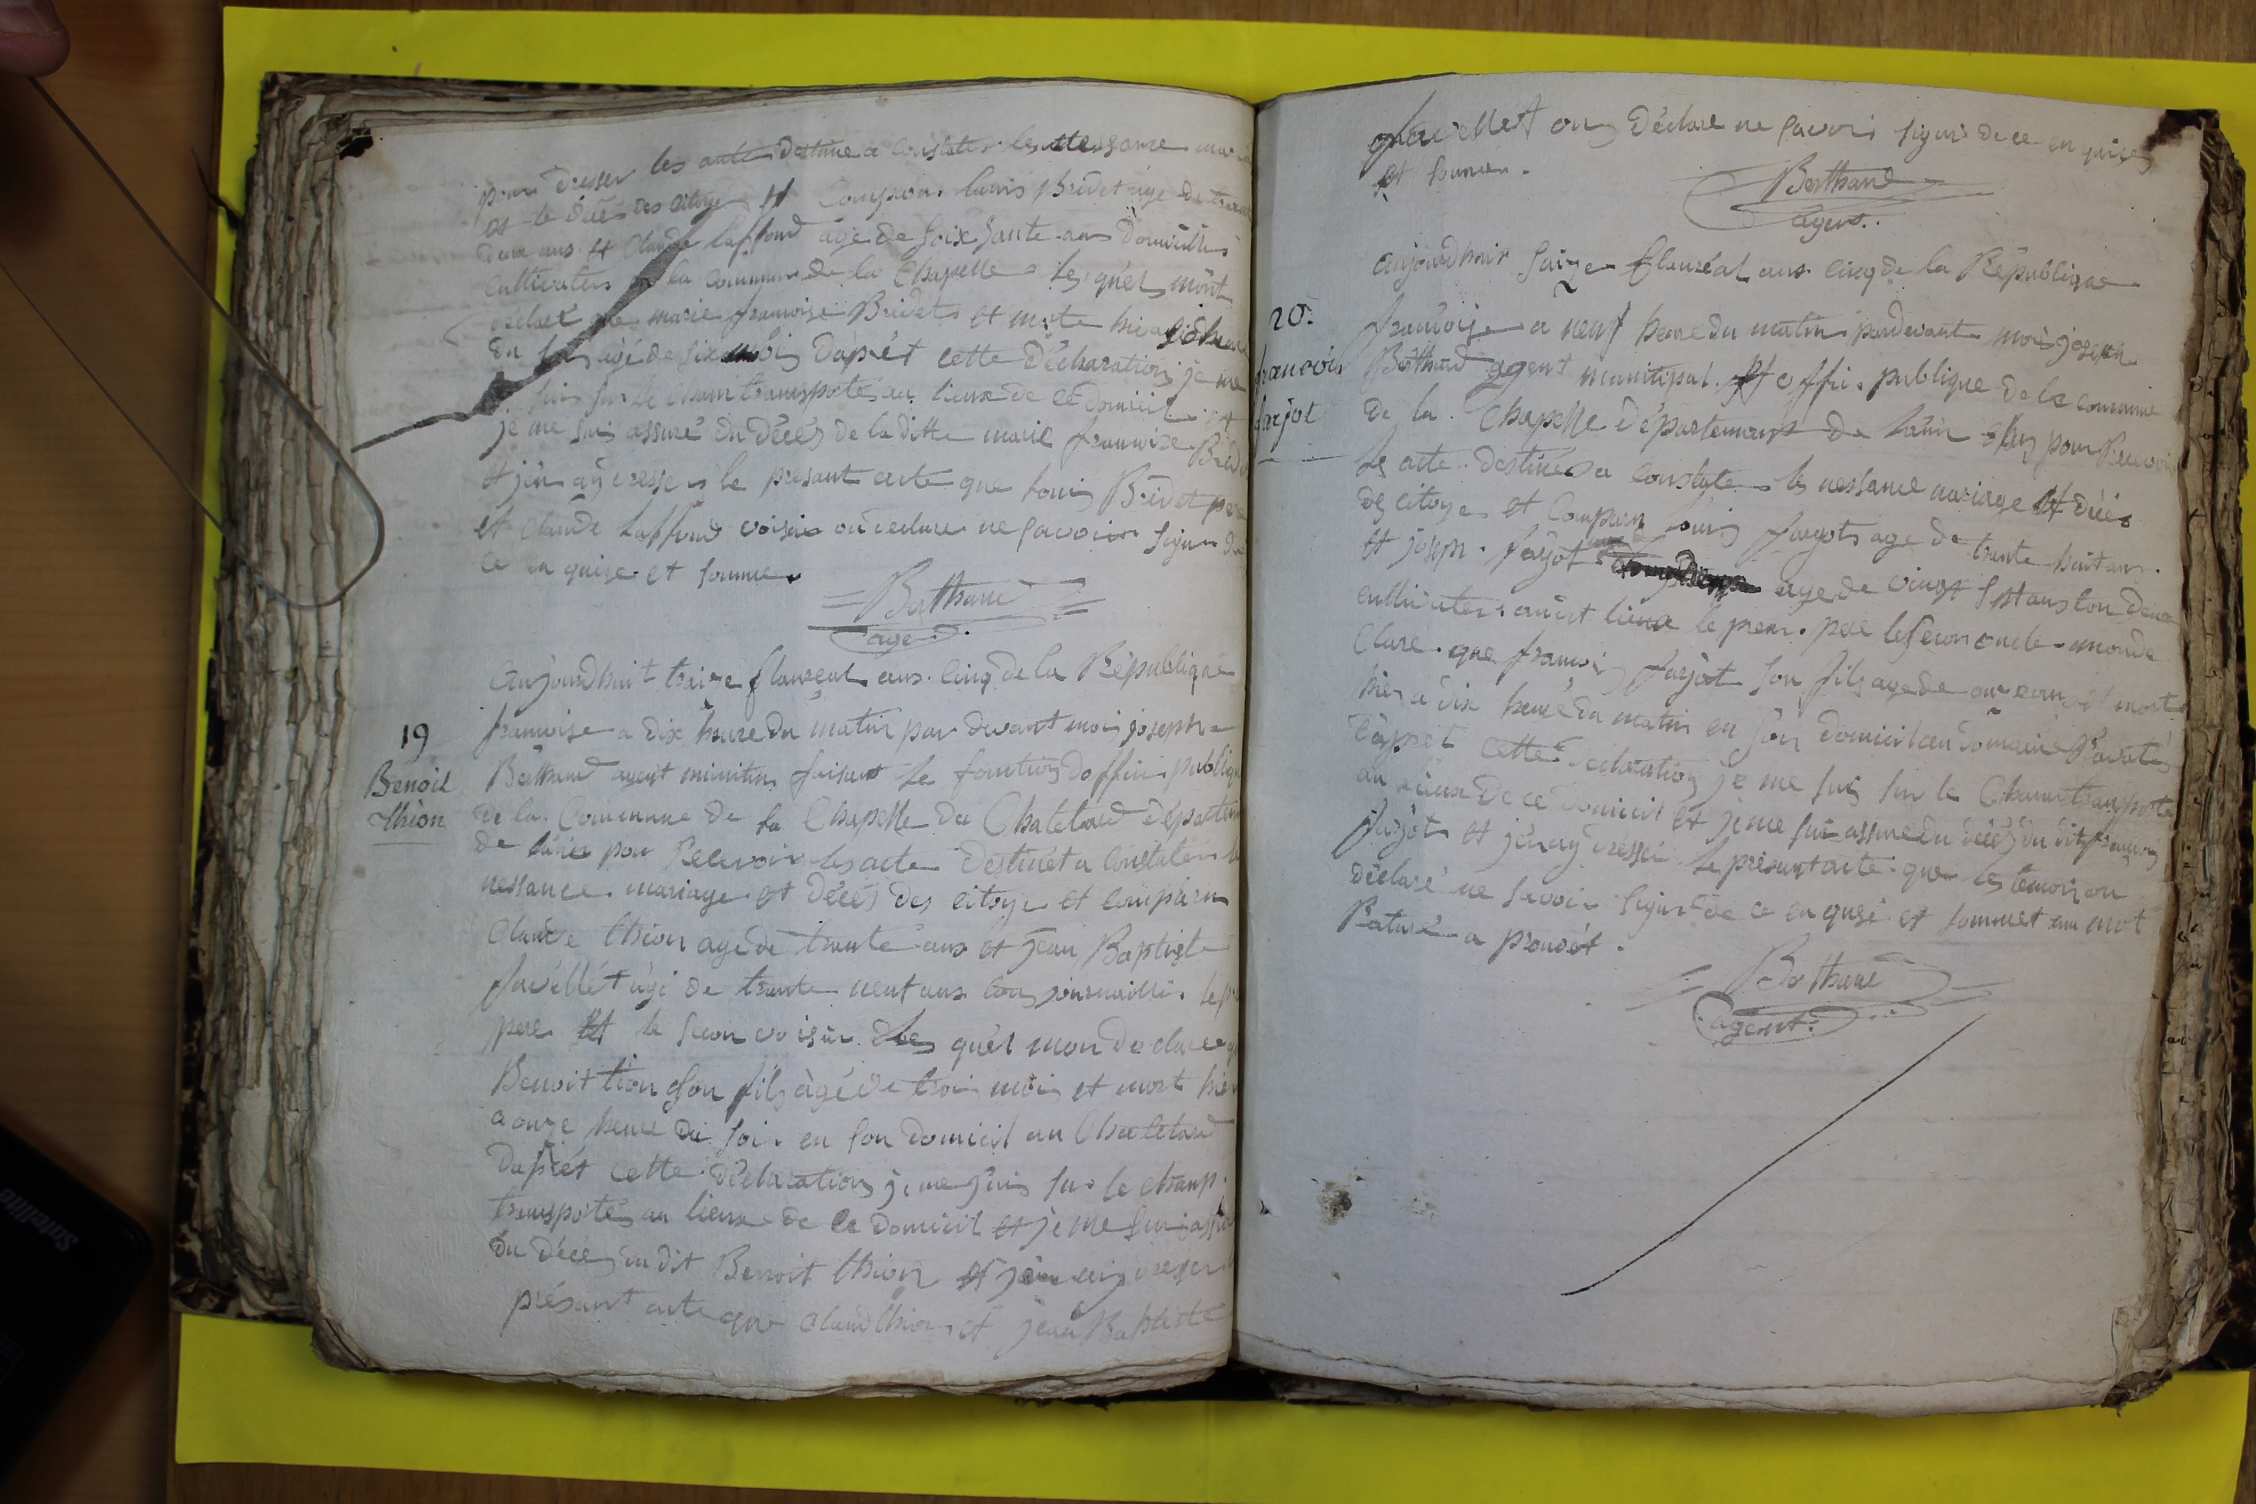 pour dresser les acte destine a constater les nessance
et le décé des citoye et Comparu louis Bridet age de
deux ans et Claude laffond age de soixsante ans
Cultivateur la commune de la Chapelle les quels mont
declaré que marie francoise Bridet et morte hier
agé de six mois daprèt cette déclaration je me
suis sur le cham transporté au lieux de ce domicil et
je me suis assuré du décés de la ditte marie francoise
et jen ay dressé le présant acte que louis Bridet pere
et claude laffond voisin on declare ne savoir signer de
ce en quise et sommer
Berthaud
agent
aujourdhuit traize flauréal ans cinq de la République
19
Benoit
thion
francoise a dix heure du matin par devant moi joseph
Berthaud agent faisant le fonction doffici publique
de la Commune de la Chapelle du Chatelard
de lain pour Recevoir les acte destinet a constater
nessance mariage et décés des citoye et comparu
Claude thion age de trante ans et jean Baptiste
favellét agé de trante neuf ans tous journailli le
pere et le secon voisin les quel mon declare
Benoit tion son fils agé de troi mois et mort hier
a onze heure du soir en son domicil au Chatelard
Daprét cette déclaration je me suis sur le champ
transporté au lieux de ce domicil et je me suis
du décés du dit Benoit thion et jen ay dresser
présant acte que claude thion et jean Baptiste
favellet on déclare ne savoir signer de ce en quise
et sommer
Berthaud
agent
aujourdhuit saize flauréal ans cinq de la République
20.
francois
farjot
francoise a neuf heure du matin pardevant moi joseph
Berthaud agent municipal et offi. publique de la commune
de la Chapelle département de lain elu pour Recevoir
les acte destinés a constate les nessance mariage et décés
des citoye et Comparu louis farjot age de trante huit ans
et joseph farjot age de vingt sept ans tou deux
cultivateur le premi. pere le secon oncle mon dé
clare que francois farjot son fils age de et mort
hier a dix heure du matin en son domicil au domaine
daprèt cette déclaration je me suis sur le Cham transporté
au lieux de ce domicil et je me suis assure du décés du dit francois
farjot et jen ay dressé le présant acte que les temoin on
declaré ne savoir signer de ce en quise et sommet un mot
Raturé a prouvét.
Berthaud
agent.